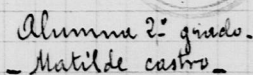 Alumna 2º grado.
- Matilde castro -